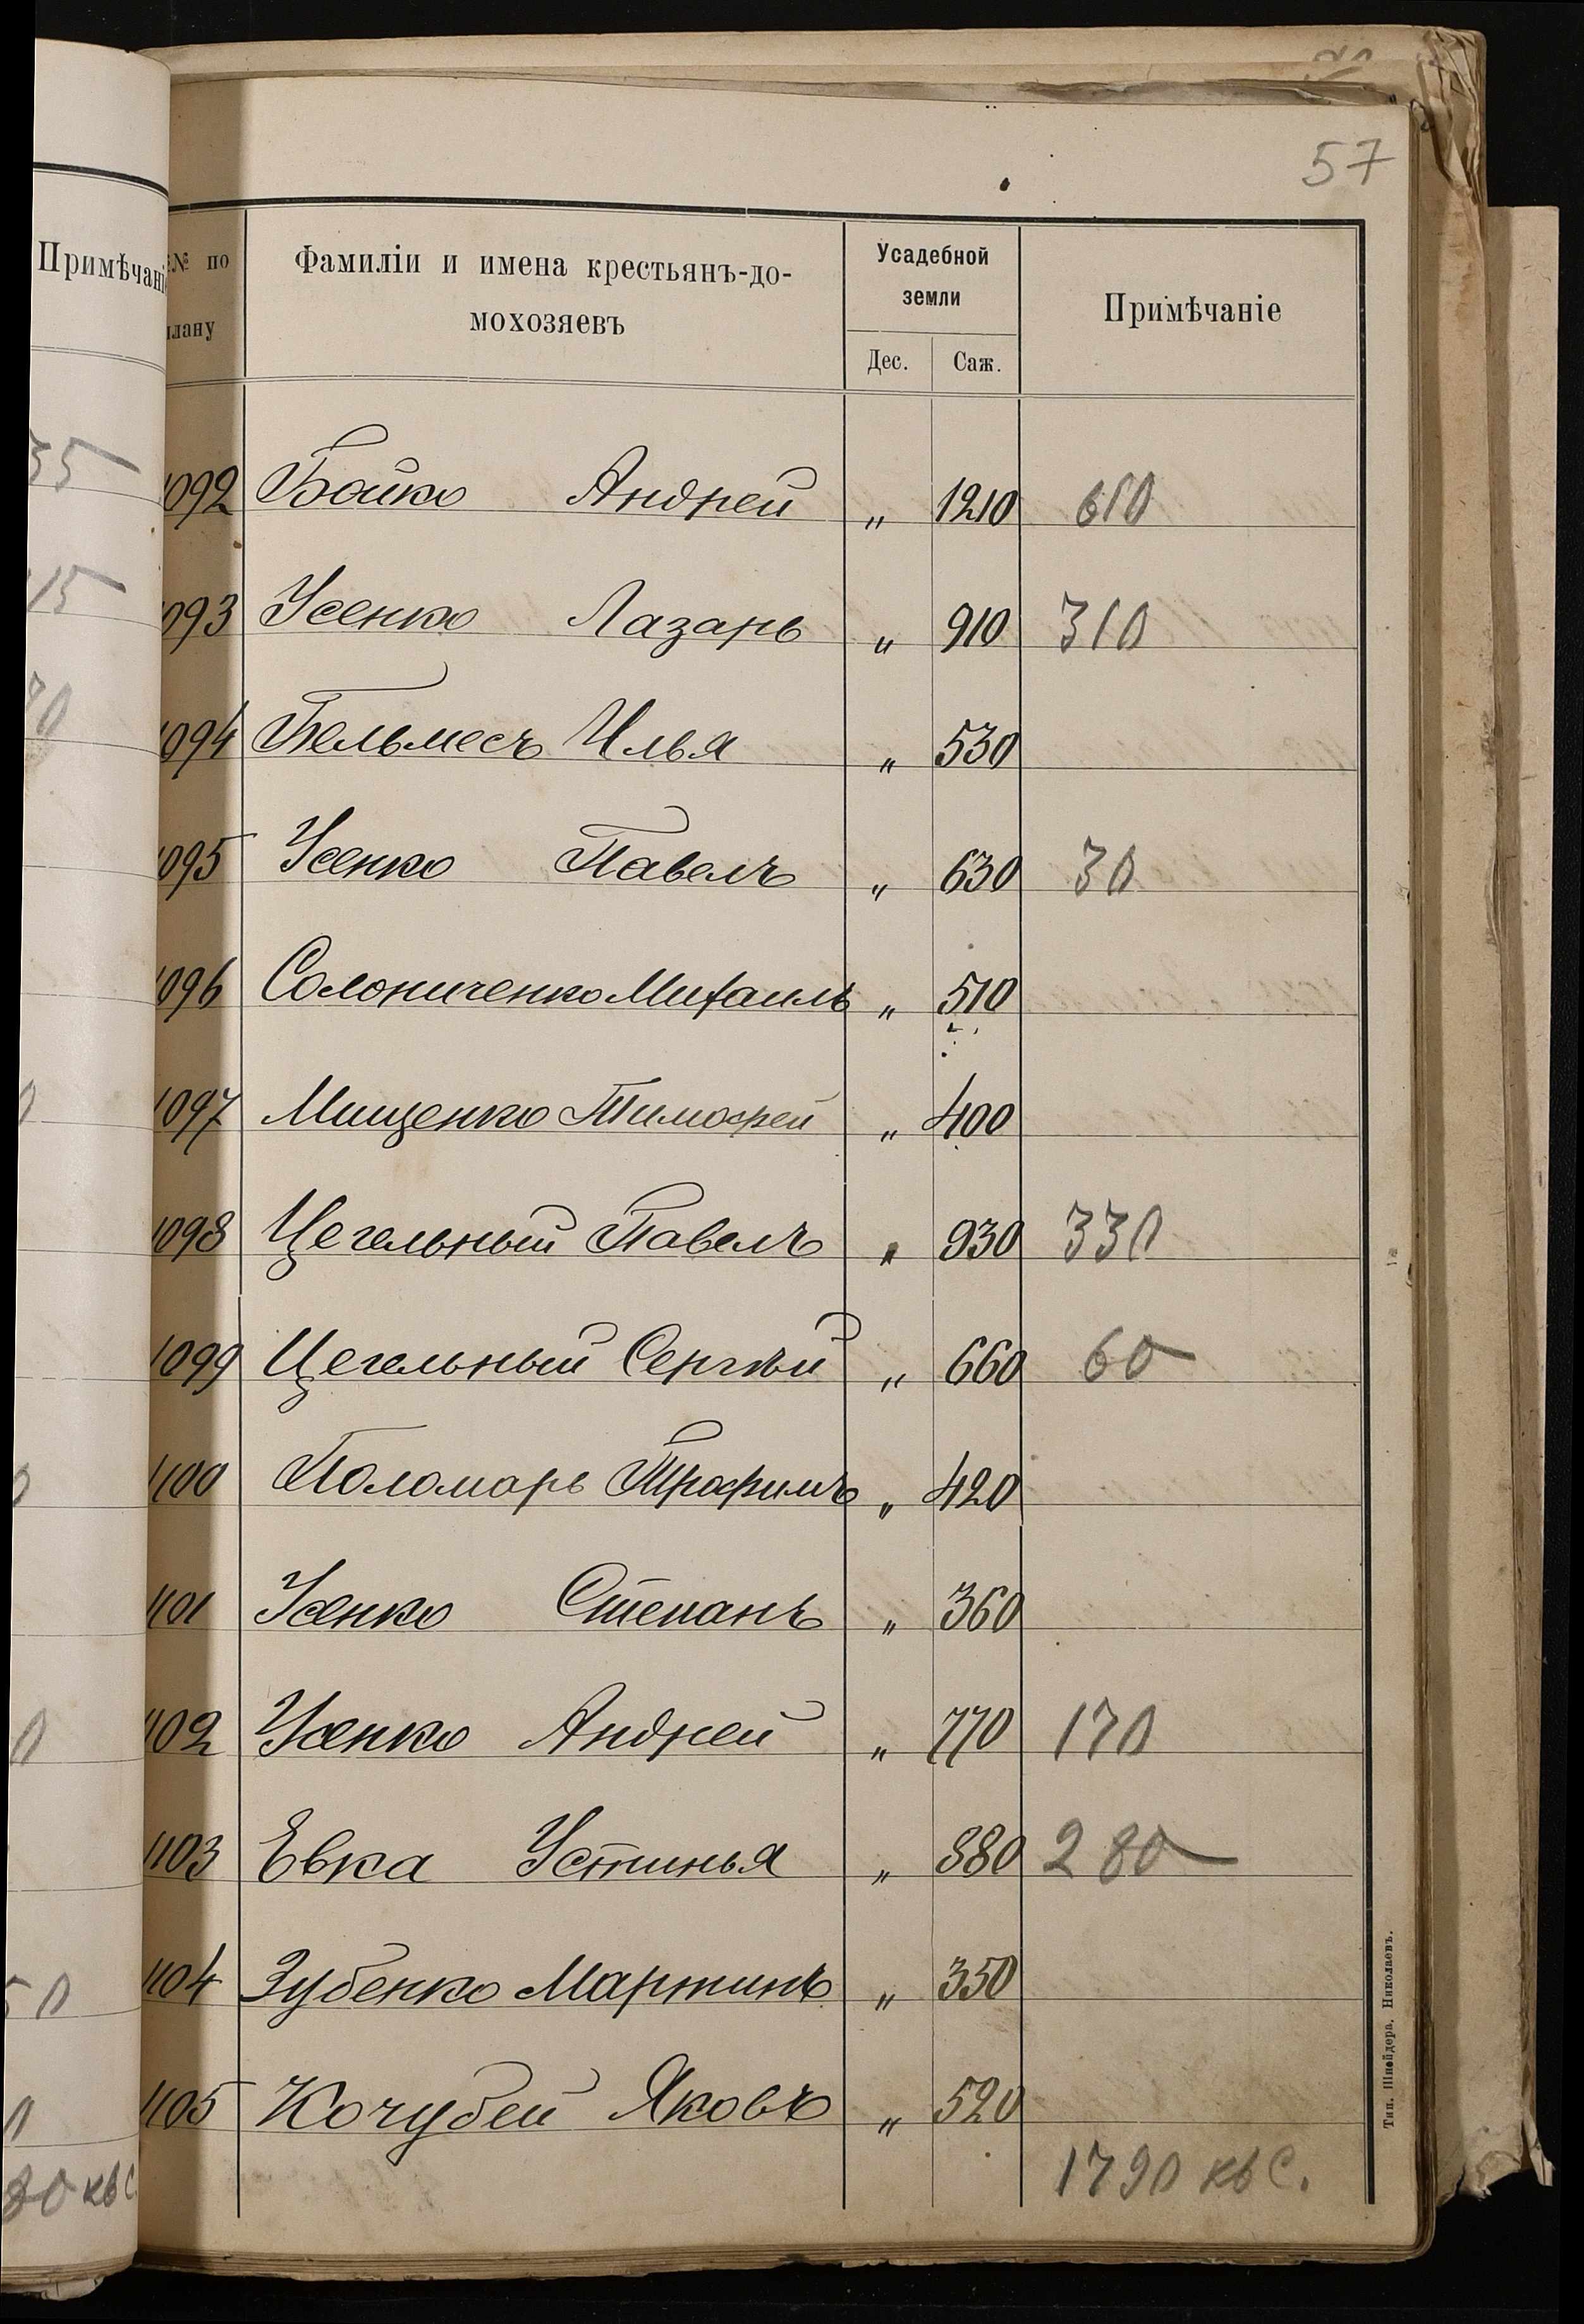 57
Примѣчані
№ по
плану
Фамиліи и имена крестьянъ-до-
мохозяевъ
Усадебной
земли
Дес. Саж.
Примѣчаніе
1092 Бойко Андрей „ 1210 610
1093 Усенко Лазарь „ 910 310
1094 Бельмесъ Илья „ 530
1095 Усенко Павелъ „ 630 30
1096 Солониченко Михаилъ „ 510
1097 Мищенко Тимофей „ 400
1098 Цегельный Павелъ „ 930 330
1099 Цегельный Сергѣй „ 660 60
1100 Поломарь Трофимъ „ 420
1101 Усенко Степанъ „ 360
1102 Усенко Андрей „ 770 170
1103 Евка Устинья „ 880 280
1104 Зубенко Мартинъ „ 350
1105 Кочубей Яковъ „ 520
1790 кв с.
Тип. Шнейдера, Николаевъ.